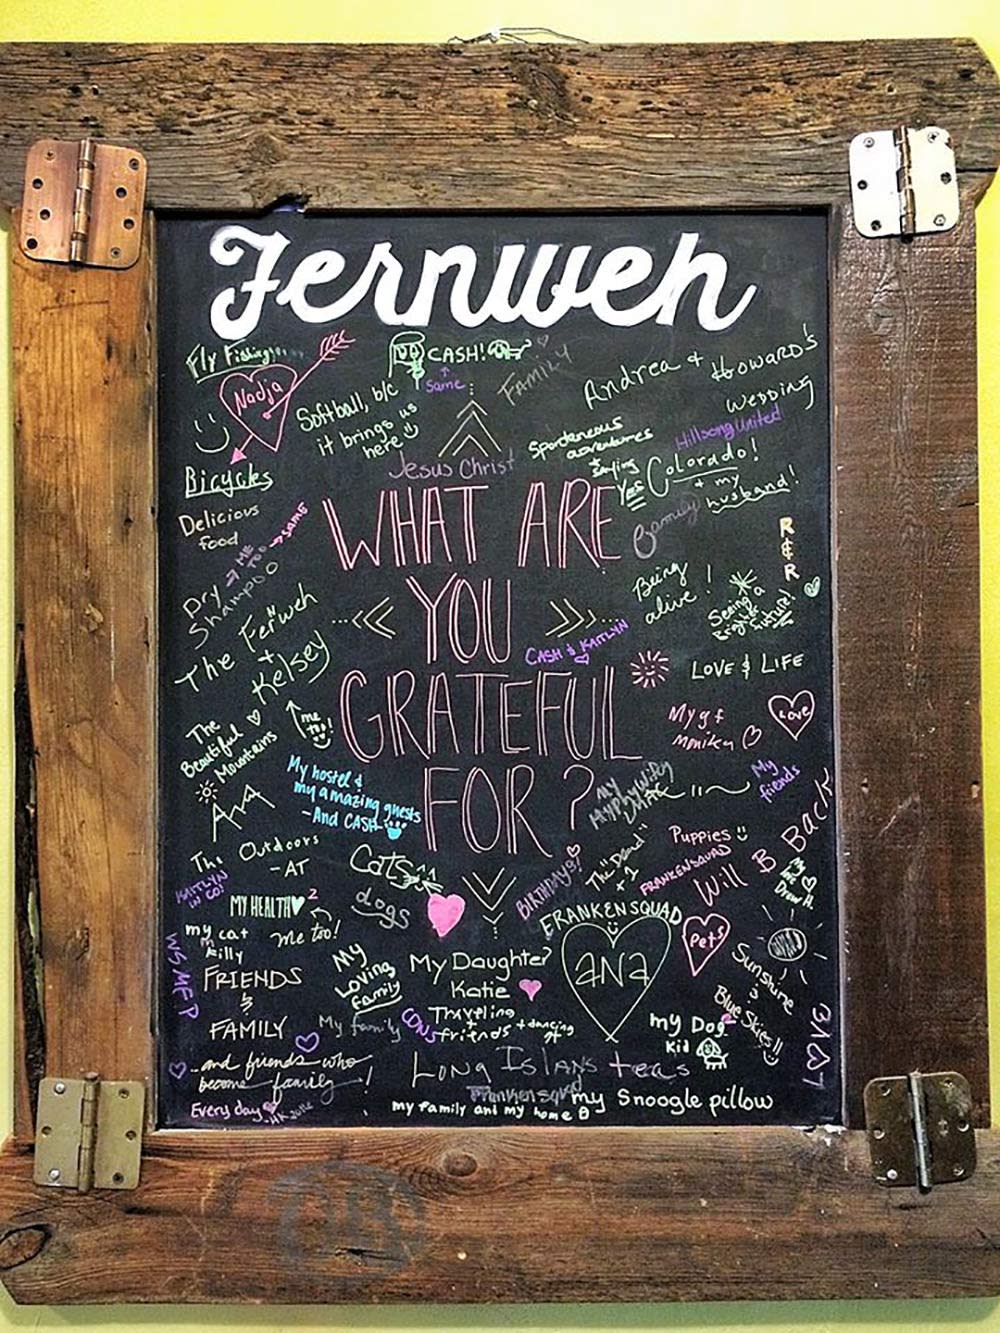 Fernweh
Fly Fishing
CASH!
Same
FAMILY
Andrea + Howard's
Wedding
Nadja
Softball, b/c
it brings us
here
Jesus Christ
Spontaneous
adventures
+ saying
Yes
Hillsong United
Colorado!
+ my
husband!
Bicycles
Delicious
food
WHAT ARE
YOU
GRATEFUL
FOR?
R
&
R
Dry
Shampoo
ME
TOO
SAME
Being
alive!
Seeing a
Brighter
future!
The Fernweh
+
Kelsey
CASH & KAITLYN
LOVE & LIFE
me
too!
The
Beautiful
Mountains
My gf
Monika
Love
My hostel &
my amazing guests
- And CASH
my
friends
my
The Outdoors
- AT
Cats
dogs
BIRTHDAYS!
The "Dead"
+1
Puppies
FRANKENSQUAD
Will
B Back
KAITLYN
IN CO!
MY HEALTH 2
me too!
my cat
Killy
FRANKENSQUAD
ANA
Pets
WSMFP
FRIENDS
&
FAMILY
My
Loving
family
My Daughter
Katie
Sunshine
&
Blue Skies!!
My family
Traveling
+ friends + dancing
my Dog
Kid
...and friends who
become family!
LONG ISLAND teas
Frankensquad
my Snoogle pillow
Every day
my family and my home